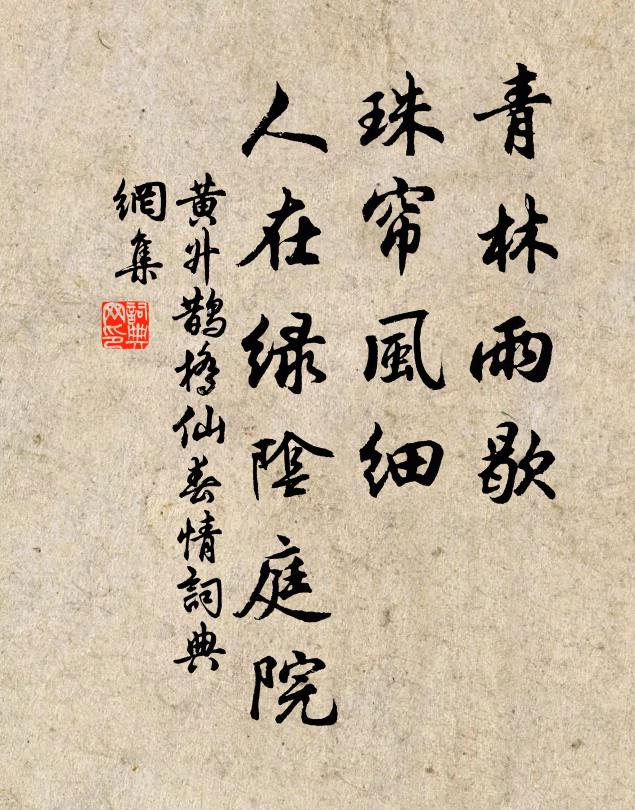 青林雨歇
珠帘風細
人在绿陰庭院
黄升鵲橋仙春情詞典
網集
詞典
网印